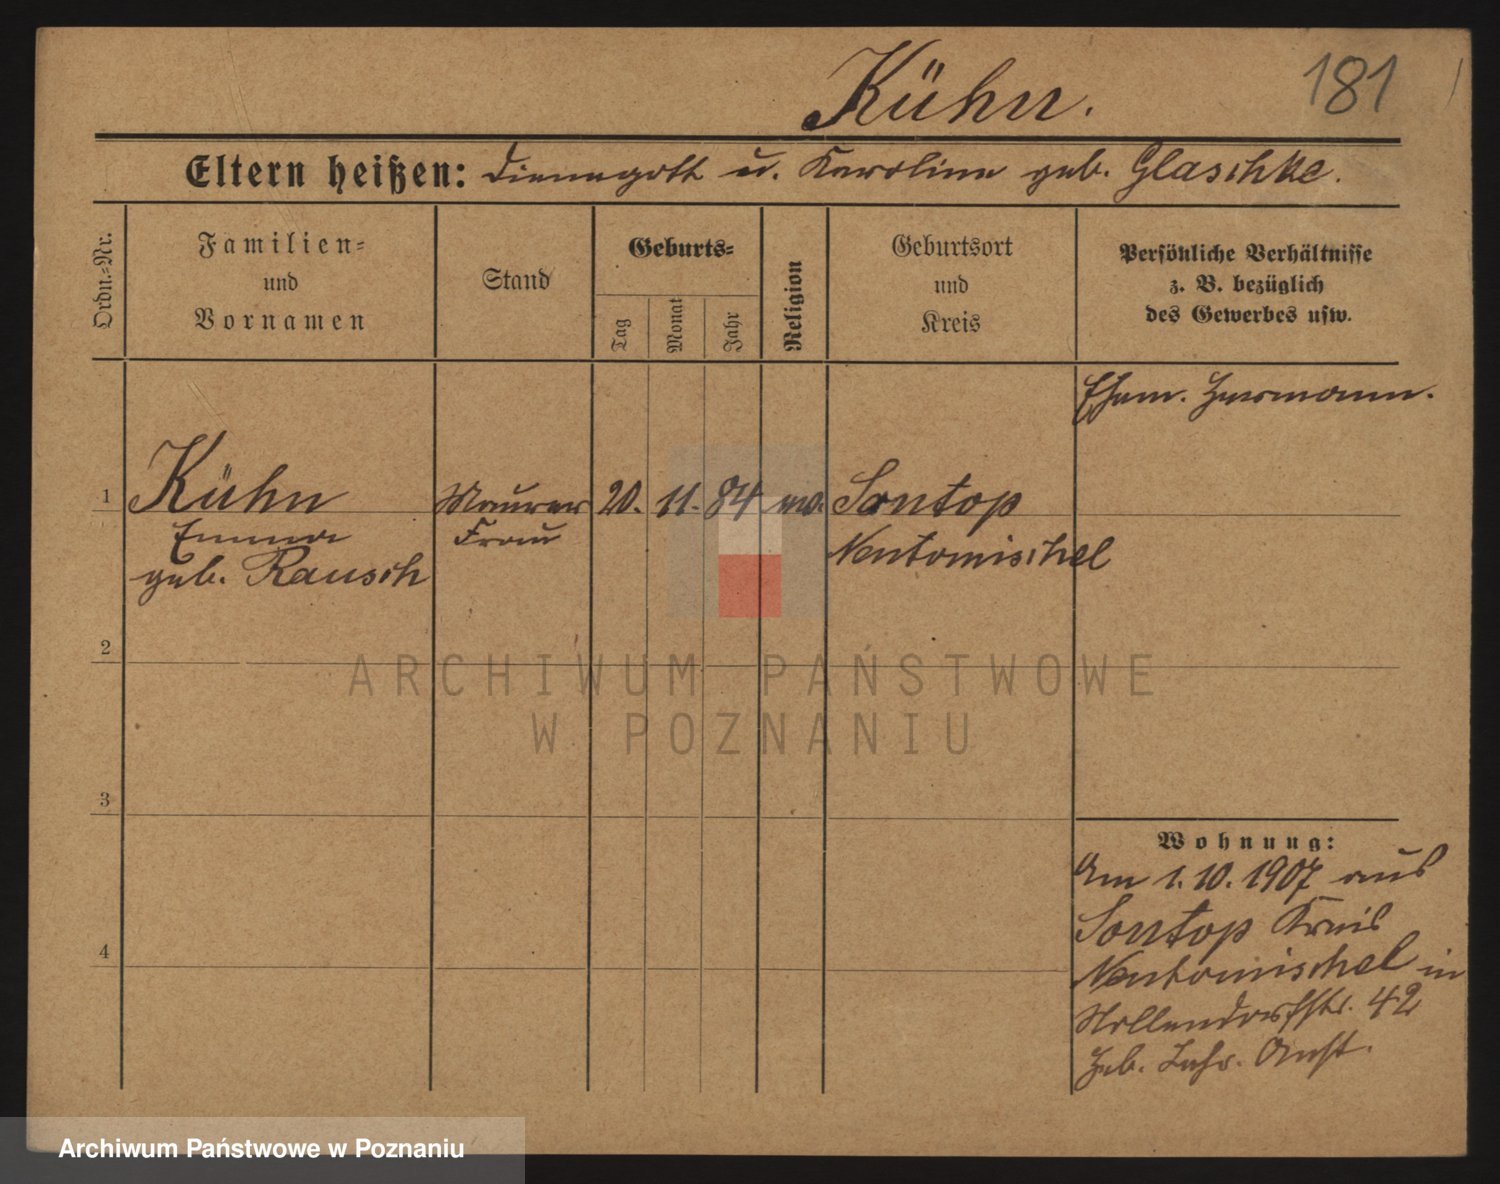 Kühn.
181
Eltern heißen: Dienegott u. Karoline geb. Glaschke.
Ordn.-Nr.
Familien-
und
Vornamen
Stand
Geburts-
Tag
Monat
Jahr
Religion
Geburtsort
und
Kreis
Persönliche Verhältnisse
z. B. bezüglich
des Gewerbes usw.
Ehem. Hermann.
1 Kühn Maurer 20. 11. 84 ev. Sontop
Emma Frau Neutomischel
geb. Rausch
2
3
4
Wohnung:
Am 1.10.1907 aus
Sontop Kreis
Neutomischel in
Nollendorfstr. 42
Heb. Lehr. Anst.
ARCHIWUM PAŃSTWOWE
W POZNANIU
Archiwum Państwowe w Poznaniu